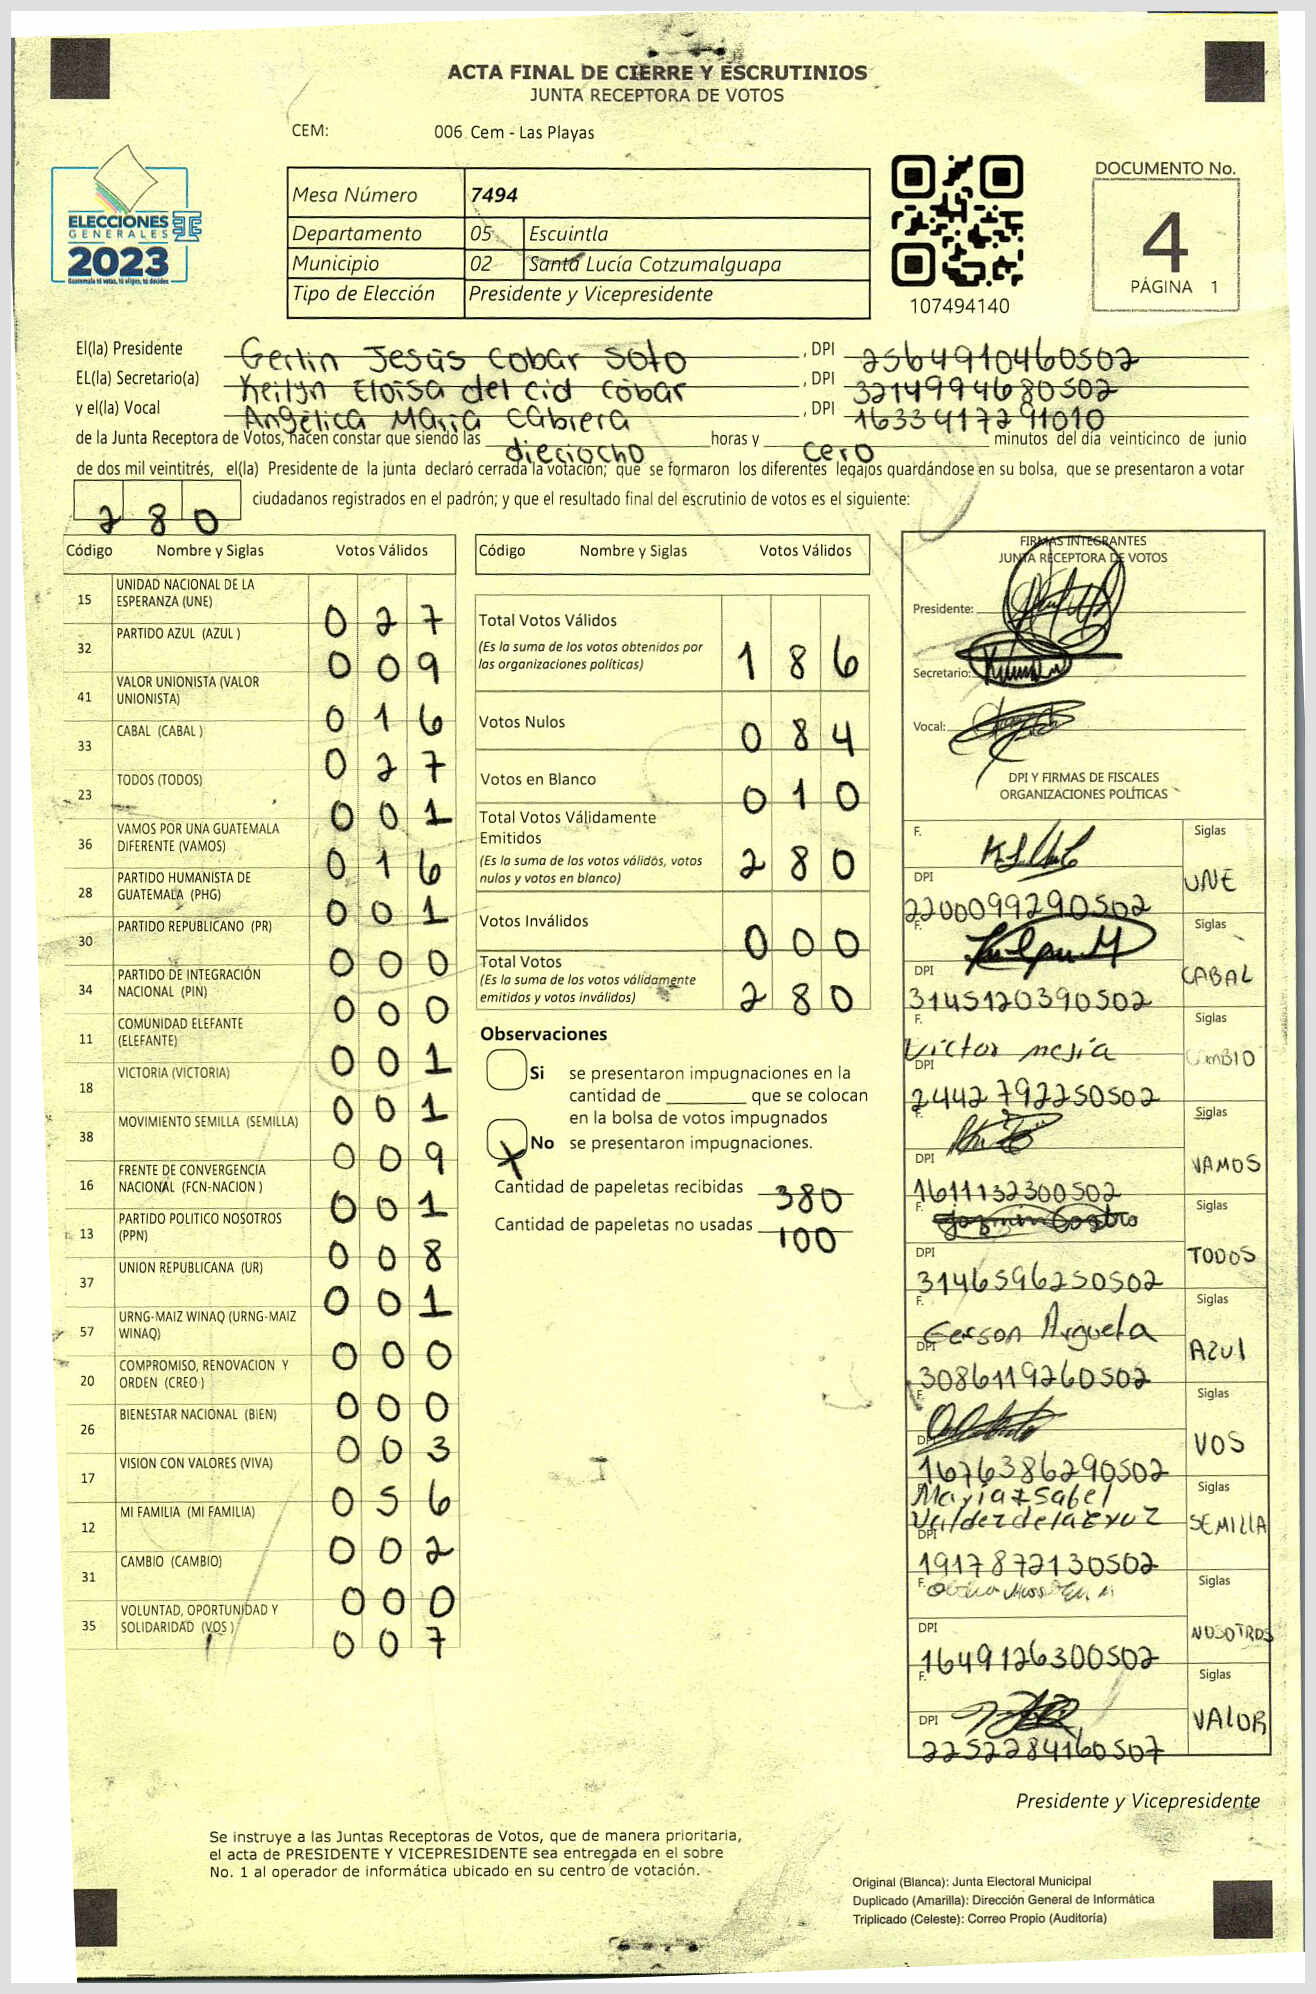 ACTA FINAL DE CIERRE Y ESCRUTINIOS
JUNTA RECEPTORA DE VOTOS
CEM: 006 Cem - Las Playas
ELECCIONES
GENERALES
2023
Guatemala tú votas, tú eliges, tú decides
Mesa Número 7494
Departamento 05 Escuintla
Municipio 02 Santa Lucía Cotzumalguapa
Tipo de Elección Presidente y Vicepresidente
107494140
DOCUMENTO No.
4
PÁGINA 1
El(la) Presidente Gerlin Jesús Cobar Soto , DPI 2564910460502
EL(la) Secretario(a) Keilyn Eloisa del Cid Cobar , DPI 3214994680502
y el(la) Vocal Angélica Maria Cabrera , DPI 1633417291010
de la Junta Receptora de Votos, hacen constar que siendo las dieciocho horas y cero minutos del día veinticinco de junio
de dos mil veintitrés, el(la) Presidente de la junta declaró cerrada la votación; que se formaron los diferentes legajos quardándose en su bolsa, que se presentaron a votar
280 ciudadanos registrados en el padrón; y que el resultado final del escrutinio de votos es el siguiente:
Código Nombre y Siglas Votos Válidos
15 UNIDAD NACIONAL DE LA ESPERANZA (UNE) 027
32 PARTIDO AZUL (AZUL ) 009
41 VALOR UNIONISTA (VALOR UNIONISTA) 016
33 CABAL (CABAL ) 027
23 TODOS (TODOS) 001
36 VAMOS POR UNA GUATEMALA DIFERENTE (VAMOS) 016
28 PARTIDO HUMANISTA DE GUATEMALA (PHG) 001
30 PARTIDO REPUBLICANO (PR) 000
34 PARTIDO DE INTEGRACIÓN NACIONAL (PIN) 000
11 COMUNIDAD ELEFANTE (ELEFANTE) 001
18 VICTORIA (VICTORIA) 001
38 MOVIMIENTO SEMILLA (SEMILLA) 009
16 FRENTE DE CONVERGENCIA NACIONAL (FCN-NACION ) 001
13 PARTIDO POLITICO NOSOTROS (PPN) 008
37 UNION REPUBLICANA (UR) 001
57 URNG-MAIZ WINAQ (URNG-MAIZ WINAQ) 000
20 COMPROMISO, RENOVACION Y ORDEN (CREO ) 000
26 BIENESTAR NACIONAL (BIEN) 003
17 VISION CON VALORES (VIVA) 056
12 MI FAMILIA (MI FAMILIA) 002
31 CAMBIO (CAMBIO) 000
35 VOLUNTAD, OPORTUNIDAD Y SOLIDARIDAD (VOS ) 007
Código Nombre y Siglas Votos Válidos
Total Votos Válidos 186
(Es la suma de los votos obtenidos por
las organizaciones políticas)
Votos Nulos 084
Votos en Blanco 010
Total Votos Válidamente
Emitidos 280
(Es la suma de los votos válidos, votos
nulos y votos en blanco)
Votos Inválidos 000
Total Votos 280
(Es la suma de los votos válidamente
emitidos y votos inválidos)
Observaciones
Si se presentaron impugnaciones en la
cantidad de ________ que se colocan
en la bolsa de votos impugnados
X No se presentaron impugnaciones.
Cantidad de papeletas recibidas 380
Cantidad de papeletas no usadas 100
FIRMAS INTEGRANTES
JUNTA RECEPTORA DE VOTOS
Presidente:
Secretario:
Vocal:
DPI Y FIRMAS DE FISCALES
ORGANIZACIONES POLÍTICAS
F. Siglas
DPI 2200099290502 UNE
F. Siglas
DPI 3145120390502 CABAL
F. Victor mejia Siglas
DPI 2442792250502 CAMBIO
F. Siglas
DPI 1611132300502 VAMOS
F. Jazmin Castro Siglas
DPI 3146596250502 TODOS
F. Gerson Argueta Siglas
DPI 3086119260502 AZUL
F. Siglas
DPI 1676386290502 VOS
F. Maria Isabel Siglas
Valdez de la Cruz
DPI 1917872130502 SEMILLA
F. Siglas
DPI 1649126300502 NOSOTROS
F. Siglas
DPI 2252284160507 VALOR
Presidente y Vicepresidente
Se instruye a las Juntas Receptoras de Votos, que de manera prioritaria,
el acta de PRESIDENTE Y VICEPRESIDENTE sea entregada en el sobre
No. 1 al operador de informática ubicado en su centro de votación.
Original (Blanca): Junta Electoral Municipal
Duplicado (Amarilla): Dirección General de Informática
Triplicado (Celeste): Correo Propio (Auditoría)